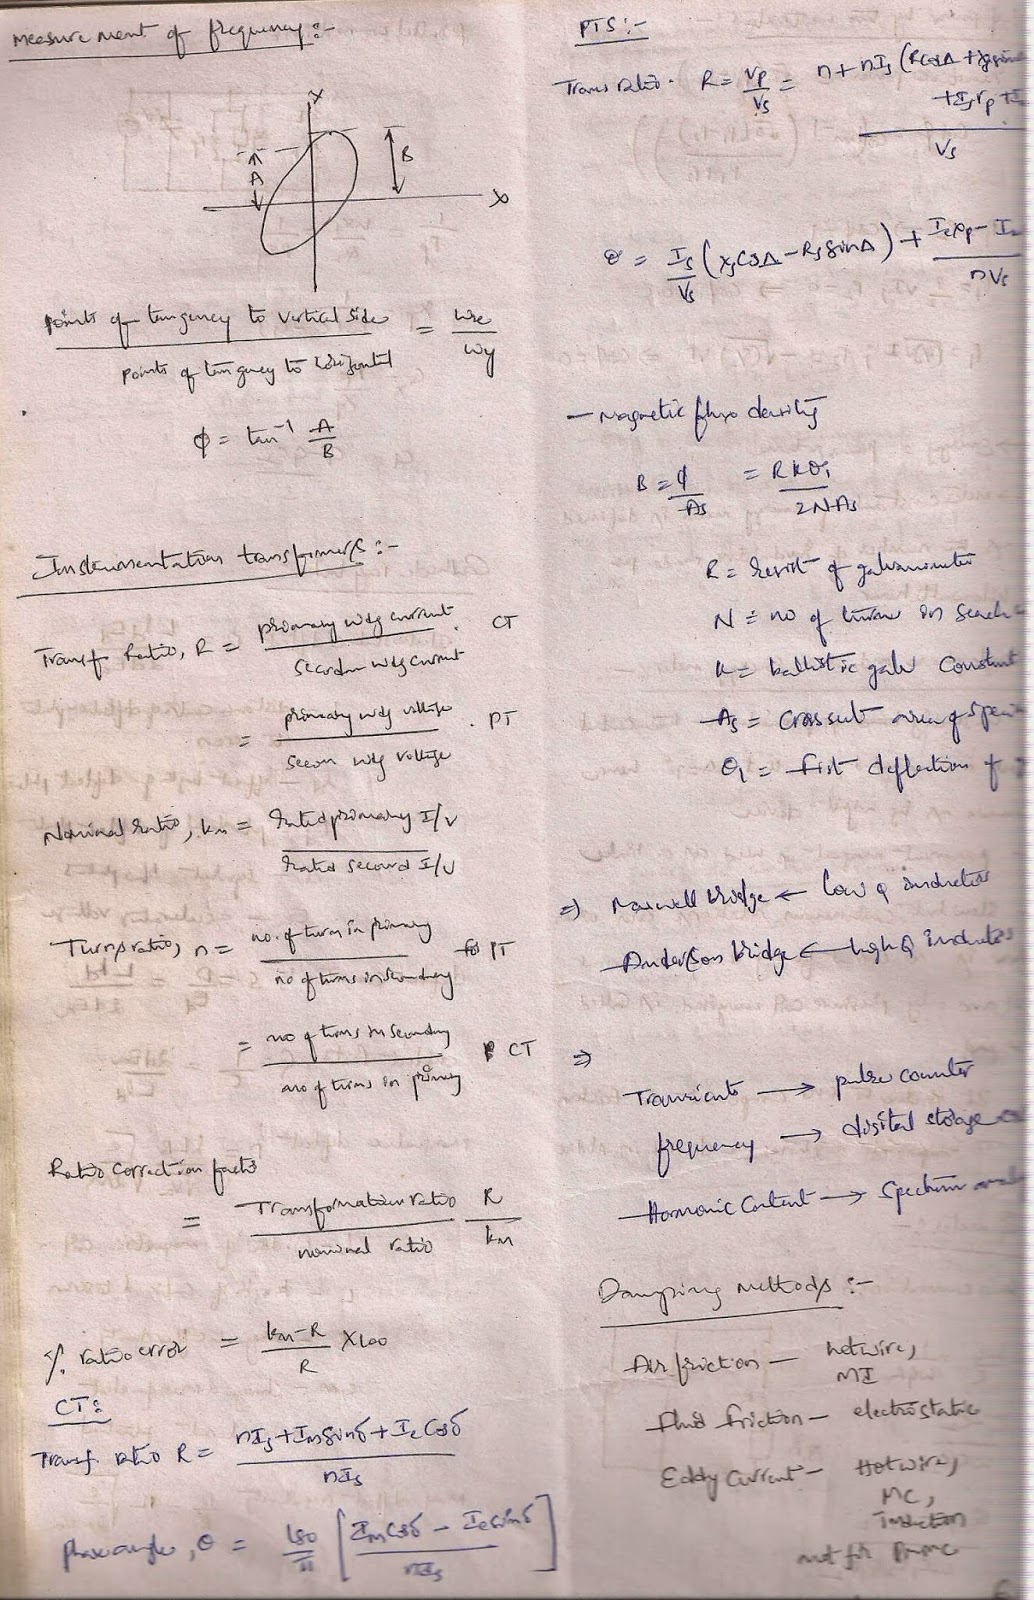 Measurement of frequency:-
X
A
B
X
points of tangency to vertical side / points of tangency to horizontal = ωx / ωy
φ = tan⁻¹ A/B
Instrumentation transformers:-
Transf. Ratio, R = primary wdg current / secondar wdg current . CT
= primary wdg voltage / secon wdg voltage . PT
Nominal ratio, kn = rated primary I/V / rated second I/V
Turns ratio, n = no. of turns in primary / no of turns in secondary for PT
= no of turns in secondary / no of turns in primary CT
Ratio correction factor
= Transformation ratio / nominal ratio R / kn
% ratio error = kn-R / R X100
CT:
Transf. ratio R = nIs + Im sinδ + Ie cosδ / nIs
phase angle, θ = 180/π [ Im cosδ - Ie sinδ / nIs ]
PTS:-
Trans ratio. R = Vp/Vs = n + nIs (R cosΔ +
+ Ie rp + I
/ Vs
θ = Is/Vs (xs cosΔ - Rs sinΔ) + Ie xp - I / nVs
- Magnetic flux density
B = φ/As = R k θ1 / 2NAs
R = resist of galvanometer
N = no of turns in search
K = ballistic galv constant
As = cross sect area of spe
θ1 = first deflection of
⇒ Maxwell bridge ← low Q inductor
Anderson bridge ← high Q inducto
⇒
Transients → pulse counter
frequency → digital storage
Harmonic Content → Spectrum
Damping methods :-
Air friction - hotwire,
MI
Fluid friction - electrostatic
Eddy Current - Hotwire,
MC,
Induction
not for PMMC